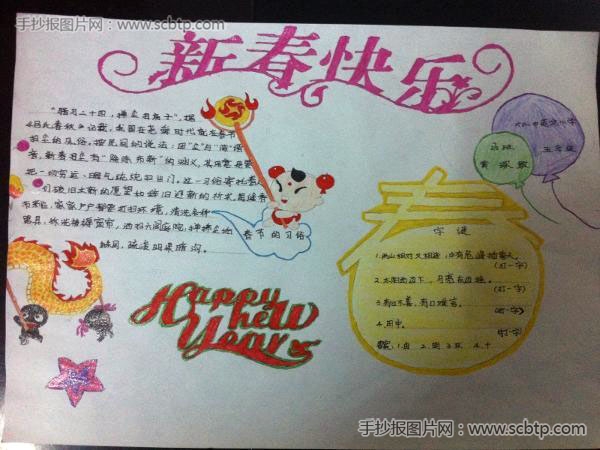 手抄报图片网:www.scbtp.com
新春快乐
"腊月二十四,掸尘扫房子",据
《吕氏春秋》记载,我国在尧舜时代就有春节
扫尘的风俗。按民间的说法:因"尘"与"陈"谐
音,新春扫尘有"除陈布新"的涵义,其用意是要
把一切穷运、晦气统统扫出门。这一习俗寄托着人
们破旧立新的愿望和辞旧迎新的祈求。每逢春
节来临,家家户户都要打扫环境,清洗各种
器具,拆洗被褥窗帘,洒扫六闾庭院,掸拂尘垢
蛛网,疏浚明渠暗沟。
春节的习俗
五年级
字谜
(打一字)
2.太阳西边下,月亮东边挂。
(打一字)
(打一字)
4.田中。
(打一字)
Happy
new
Year
手抄报图片网:www.scbtp.com